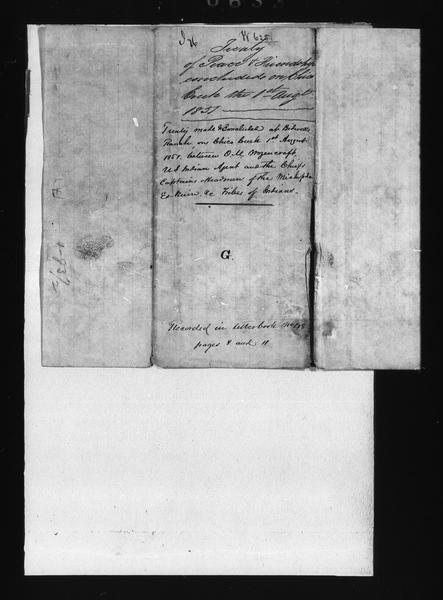 W 625
Treaty
of Peace & Friendship
concluded on Chico
Creek the 1st Augt.
1851
Treaty made & Concluded at Bidwells
Ranch on Chico Creek 1st August
1851. between O. M. Wozencraft
U S Indian Agent and the Chiefs
Captains Headmen of the Michopda
Es-Kuin, &c Tribes of Indians.
G.
Recorded in letterbook
pages 8 and 11